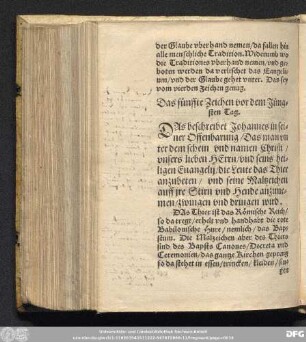 der Glaube vberhand nemen / da fallen hin
alle menschliche Tradition. Widerumb / wo
die Traditiones vberhand nemen / vnd ge-
boten werden da verleschet das Euangeli-
um / vnd der Glaube gehet vnter. Das sey
vom vierden Zeichen genug.
Das fünffte Zeichen vor dem Jüng-
sten Tag.
DAs beschreibet Johannes in sei-
ner Offenbarung / Das man vn
ter dem schein vnd namen Christi /
vnsers lieben HErrn / vnd seins hei-
ligen Euangelij / die Leute das Thier
anzubeten / vnd seine Malzeichen
auff jre Stirn vnd Hende anzune-
men / zwingen vnd dringen wird.
DAs Thier ist das Römische Reich /
so da tregt / erhelt vnd handhabt die rote
Babilonische Hure / nemlich / das Bap-
stum. Die Malzeichen aber des Thiers
sind / des Bapsts Canones / Decreta vnd
Ceremonien / das gantze Kirchen gepreng
so da stehet in essen / trincken / kleiden /
gen